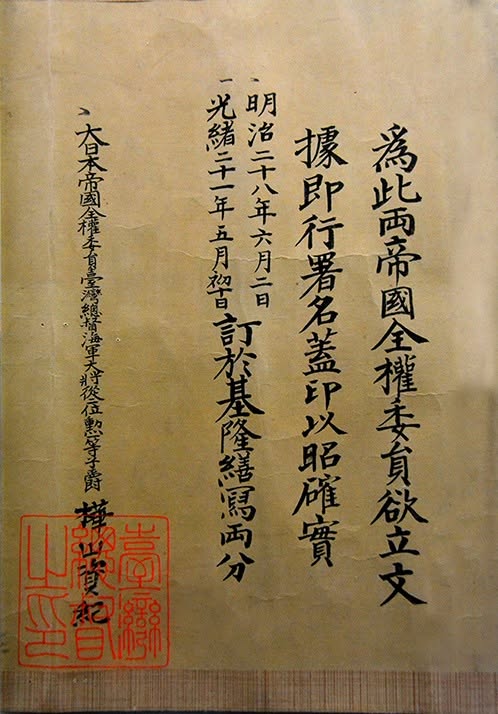 爲此両帝國全權委員欲立文
據即行署名蓋印以昭確實
明治二十八年六月二日
光緒二十一年五月初十日
訂於基隆繕寫両分
大日本帝國全權委員臺灣總督海軍大將從二位勲一等子爵 樺山資紀
臺灣總督之印